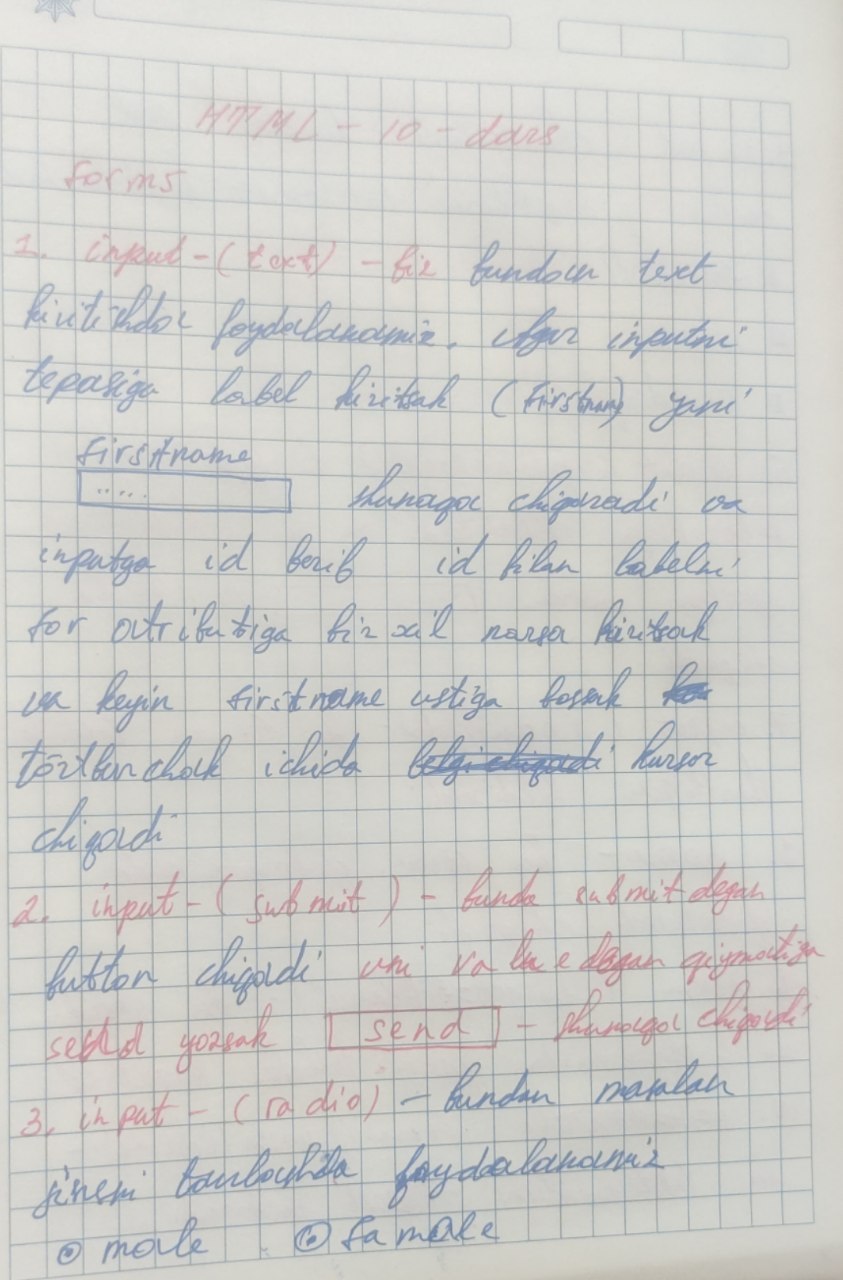 HTML - 10 - dars
forms
1. input - (text) - biz bundan text
kiritishda foydalanamiz. Agar inputni
tepasiga label kiritsak (firstname) yani
firstname
.....
shunaqa chiqaradi va
inputga id berib id bilan labelni
for atributiga bir xil narsa kiritsak
va keyin firstname ustiga bossak
törtburchak ichida kursor
chiqadi
2. input - (submit) - bunda submit degan
button chiqadi uni value degan qiymatiga
send yozsak send - shunaqa chiqadi
3. input - (radio) - bundan masalan
jinsni tanlashda foydalanamiz
male famale